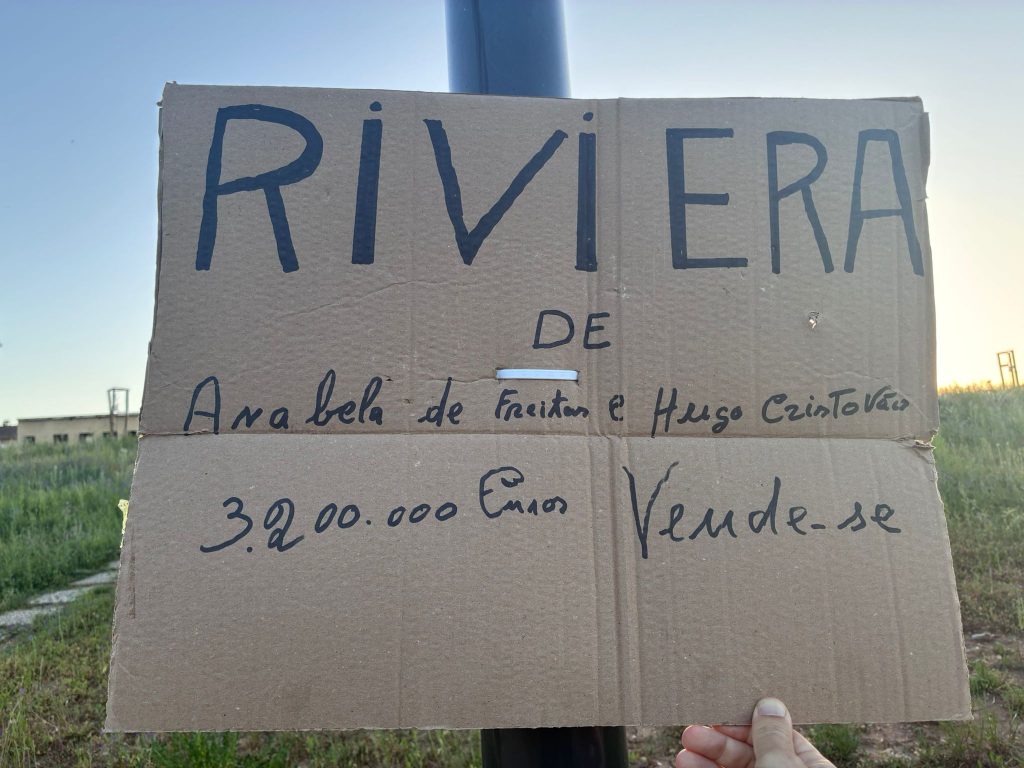 RiViERA
DE
Anabela de Freitas e Hugo CristoVão
3.200.000 Euros Vende-se